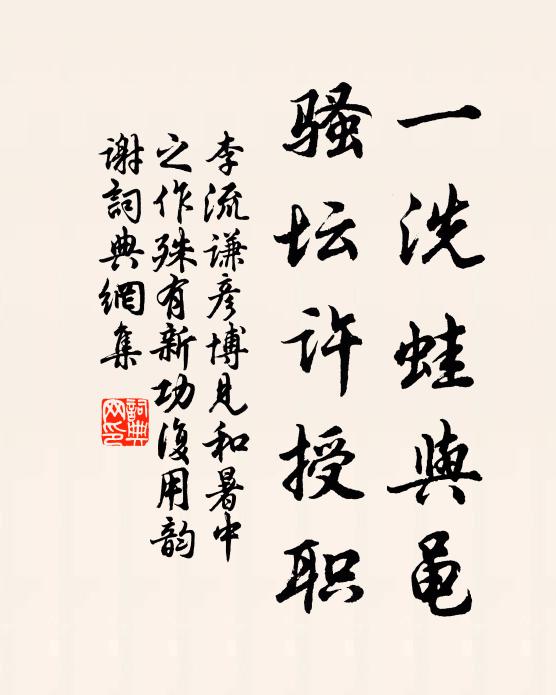 一洗蛙與黽
骚坛许授职
李流谦彦博见和暑中
之作殊有新功復用韵
谢詞典網集
詞典
网印